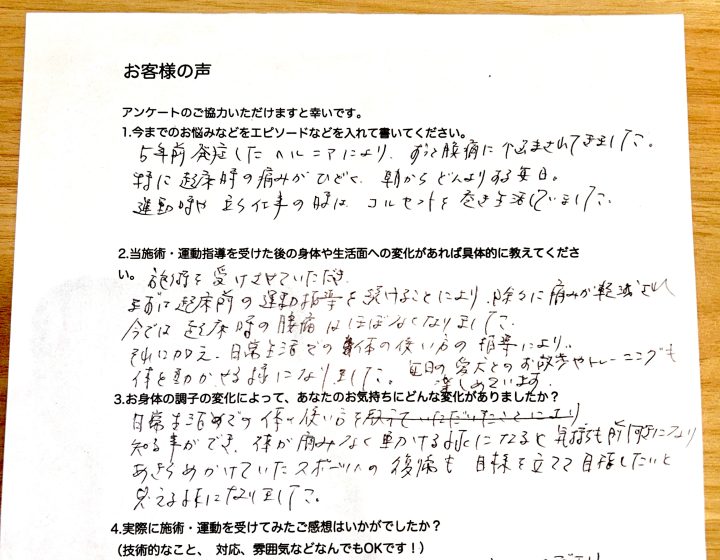 お客様の声
アンケートのご協力いただけますと幸いです。
1.今までのお悩みなどをエピソードなどを入れて書いてください。
5年前発症したヘルニアにより、ずっと腰痛に悩まされてきました。
特に起床時の痛みがひどく、朝からどんよりする毎日。
運動時や立ち仕事の時は、コルセットを巻き生活していました。
2.当施術・運動指導を受けた後の身体や生活面への変化があれば具体的に教えてくださ
い。施術を受けさせていただき
まずは起床前の運動指導を続けることにより、除々に痛みが軽減され
今では起床時の腰痛はほぼなくなりました。
それに加え、日常生活での体の使い方の指導により、
体を動かせる様になりました。毎日の愛犬とのお散歩やトレーニングも
楽しめています。
3.お身体の調子の変化によって、あなたのお気持ちにどんな変化がありましたか？
日常生活での体の使い方を教えていただいたことにより
知る事ができ、体が痛みなく動かせる様になると気持ちも前向きになり
あきらめかけていたスポーツへの復帰も目標を立てて目指したいと
思える様になりました。
4.実際に施術・運動を受けてみたご感想はいかがでしたか？
（技術的なこと、対応、雰囲気などなんでもOKです！）